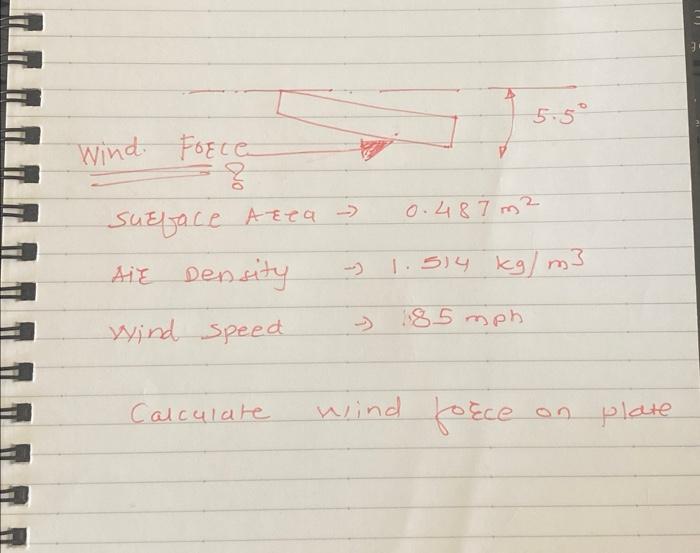 5.5°
Wind. Force
?
Surface Area → 0.487 m²
Air Density → 1.514 kg/m³
Wind speed → 85 mph
Calculate wind force on plate